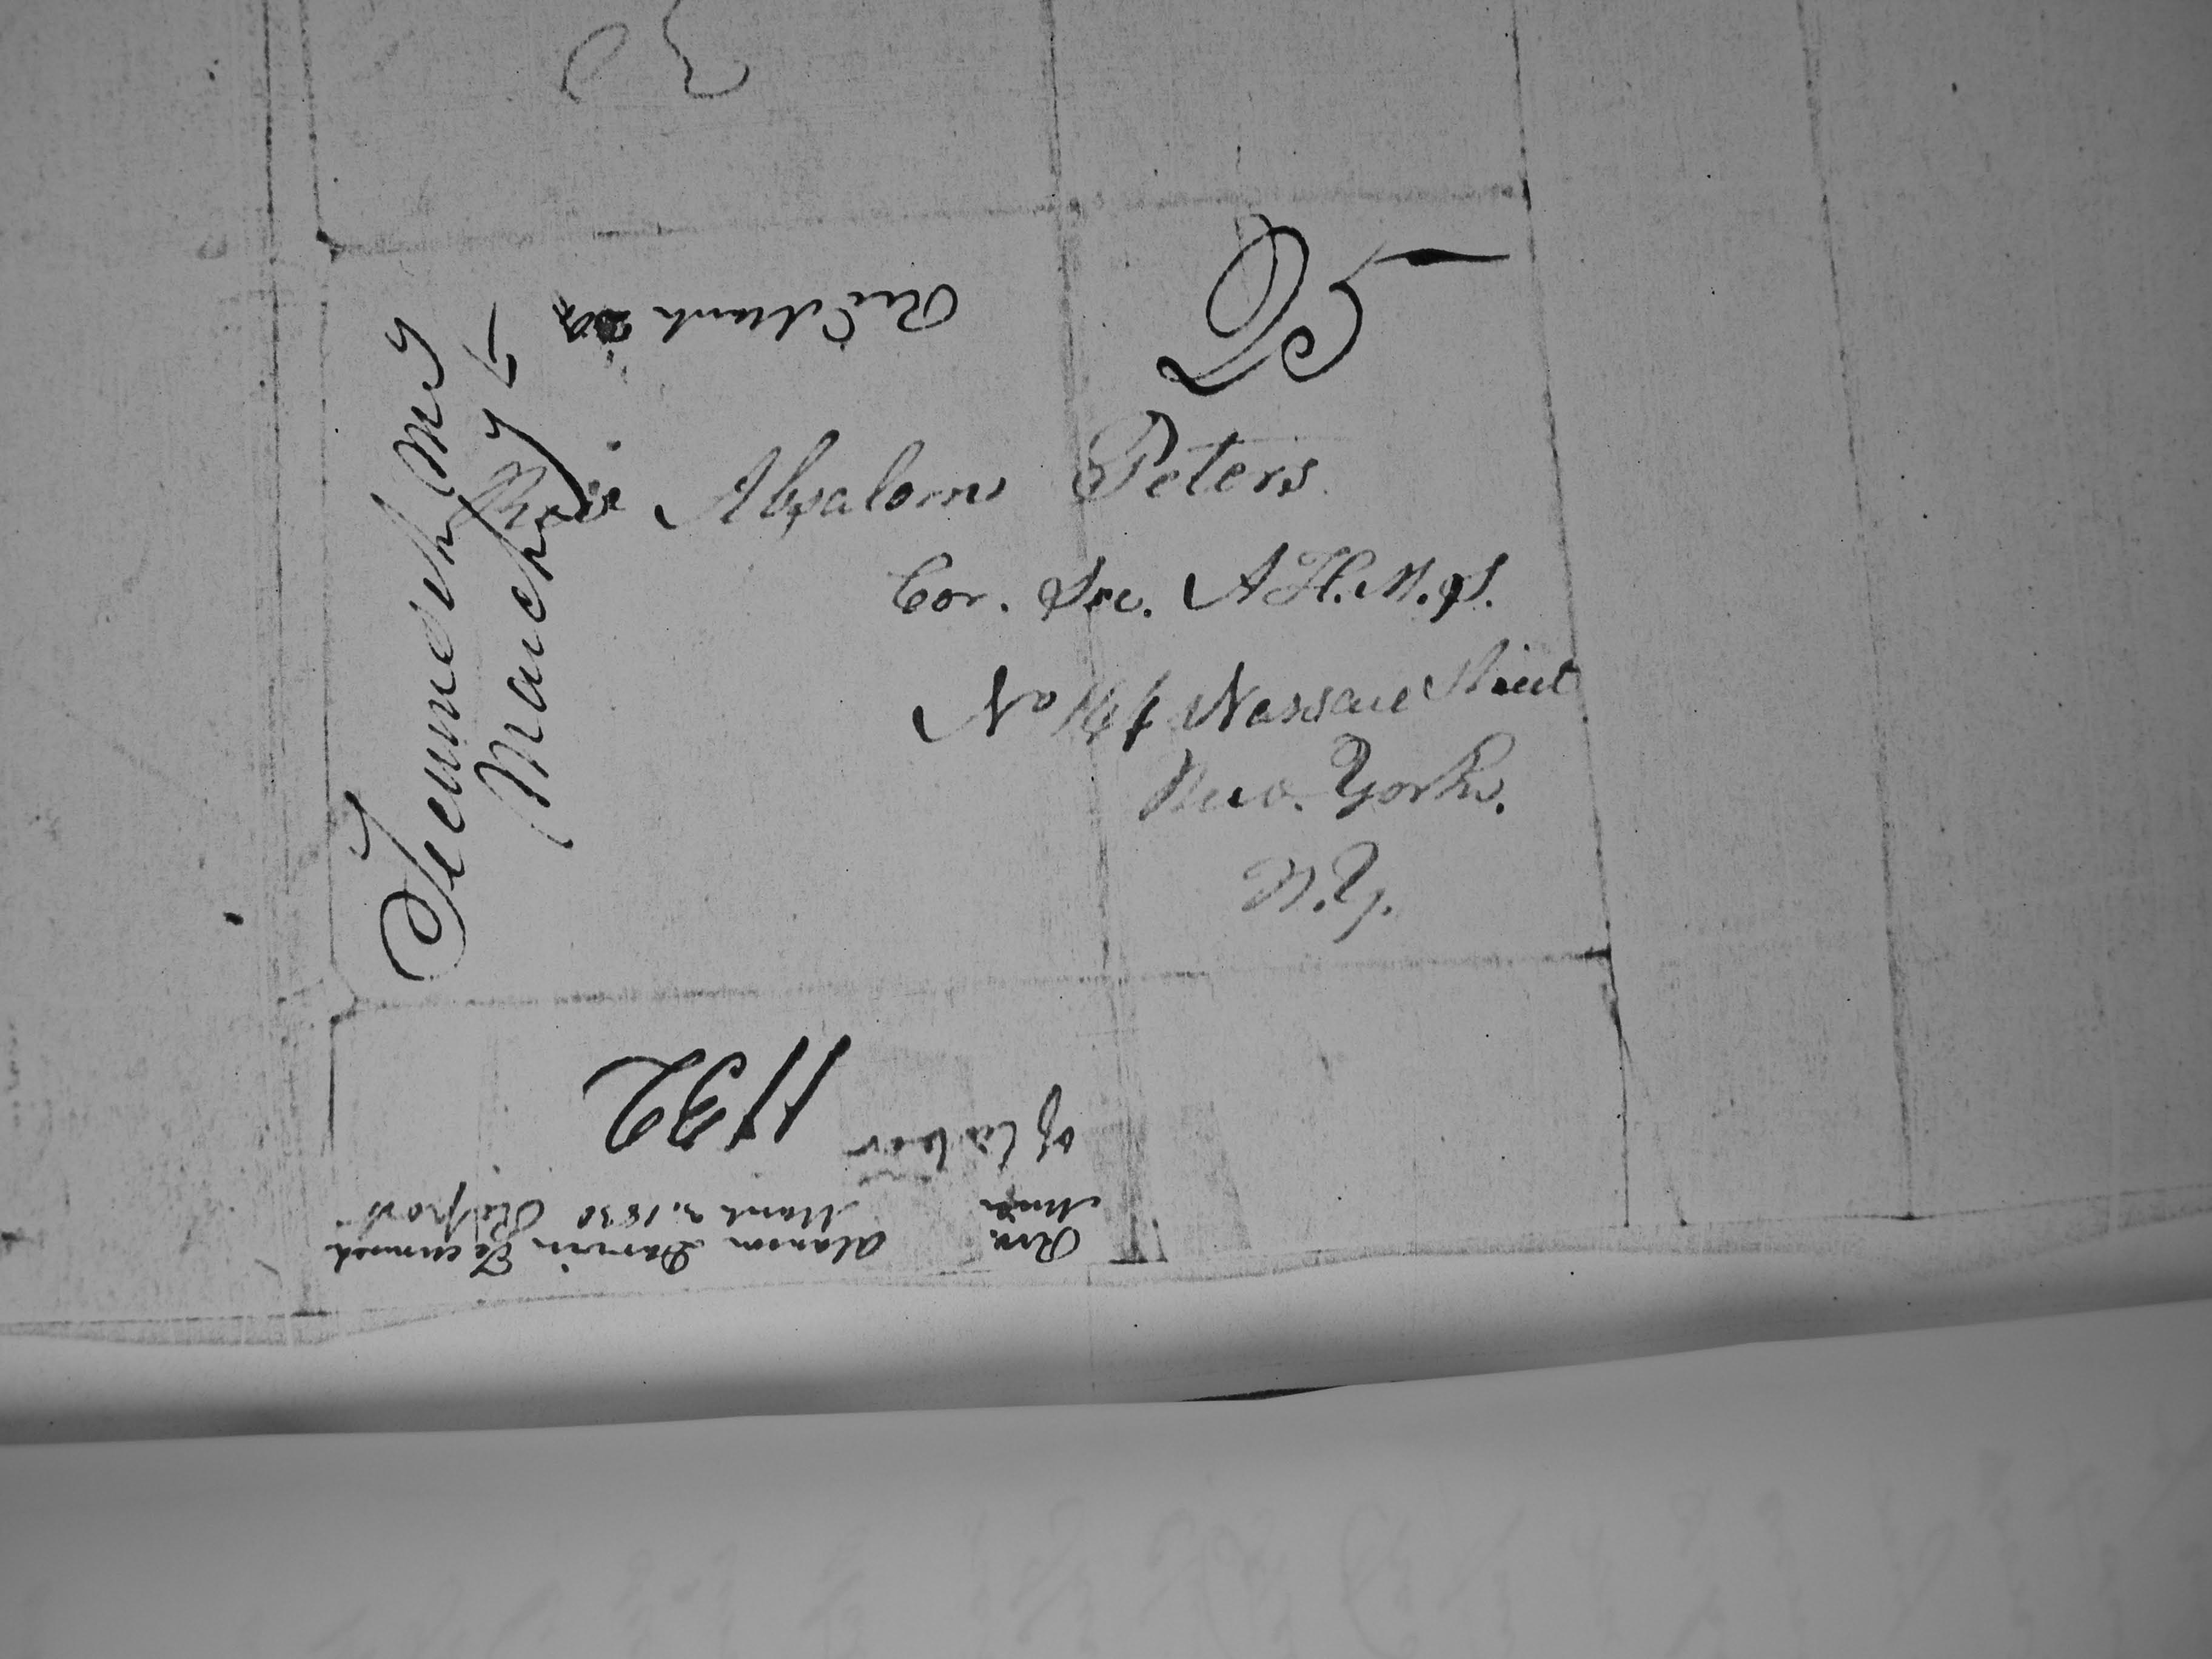 Tecumseh M.T
March 5
25
Recd March 20
Rev Absalom Peters
Cor. Sec. A.H.M.S.
No 144 Nassau Street
New. York.
N.Y.
Rev. Alanson Darwin Tecumseh
March 2. 1830 Report
of labor
1132